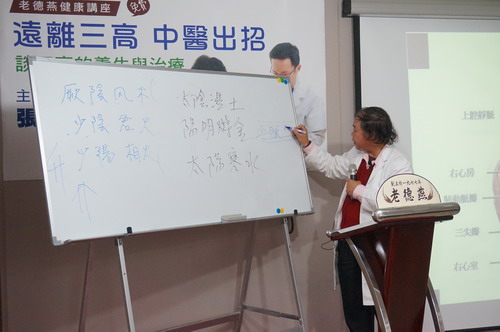 老德燕健康講座
免費
遠離三高 中醫出招
的養生與治療
主
張
厥陰風木
少陰君火
少陽相火
太陰濕土
陽明燥金
太陽寒水
老德燕
上腔靜脈
右心房
三尖瓣
右心室